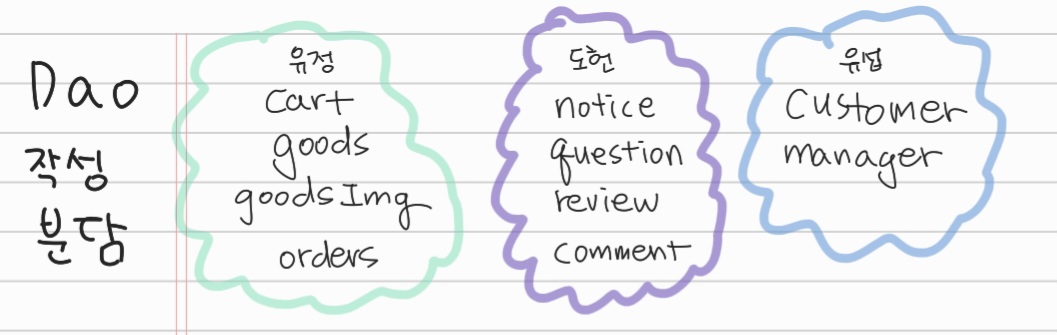 Dao
작성
분담
유정
Cart
goods
goodsImg
orders
도헌
notice
question
review
comment
유섭
Customer
manager